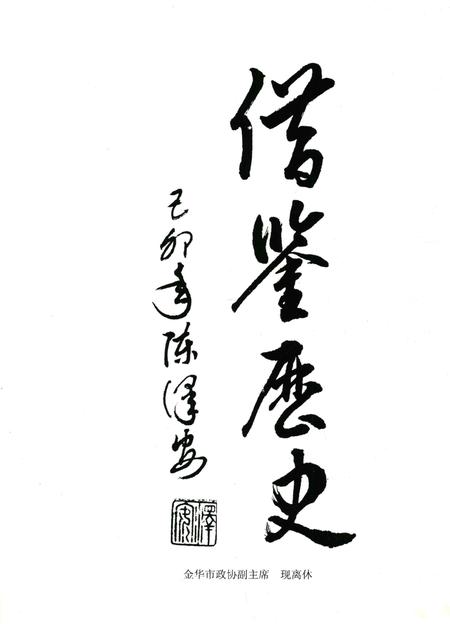 借鉴歷史
己卯年陈泽安
泽安
金华市政协副主席 现离休